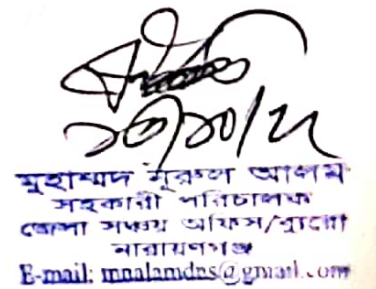 মুহাম্মদ নূরুল আলম
সহকারী পরিচালক
জেলা সঞ্চয় অফিস/ব্যুরো
নারায়ণগঞ্জ
E-mail: mnalamdns@gmail.com